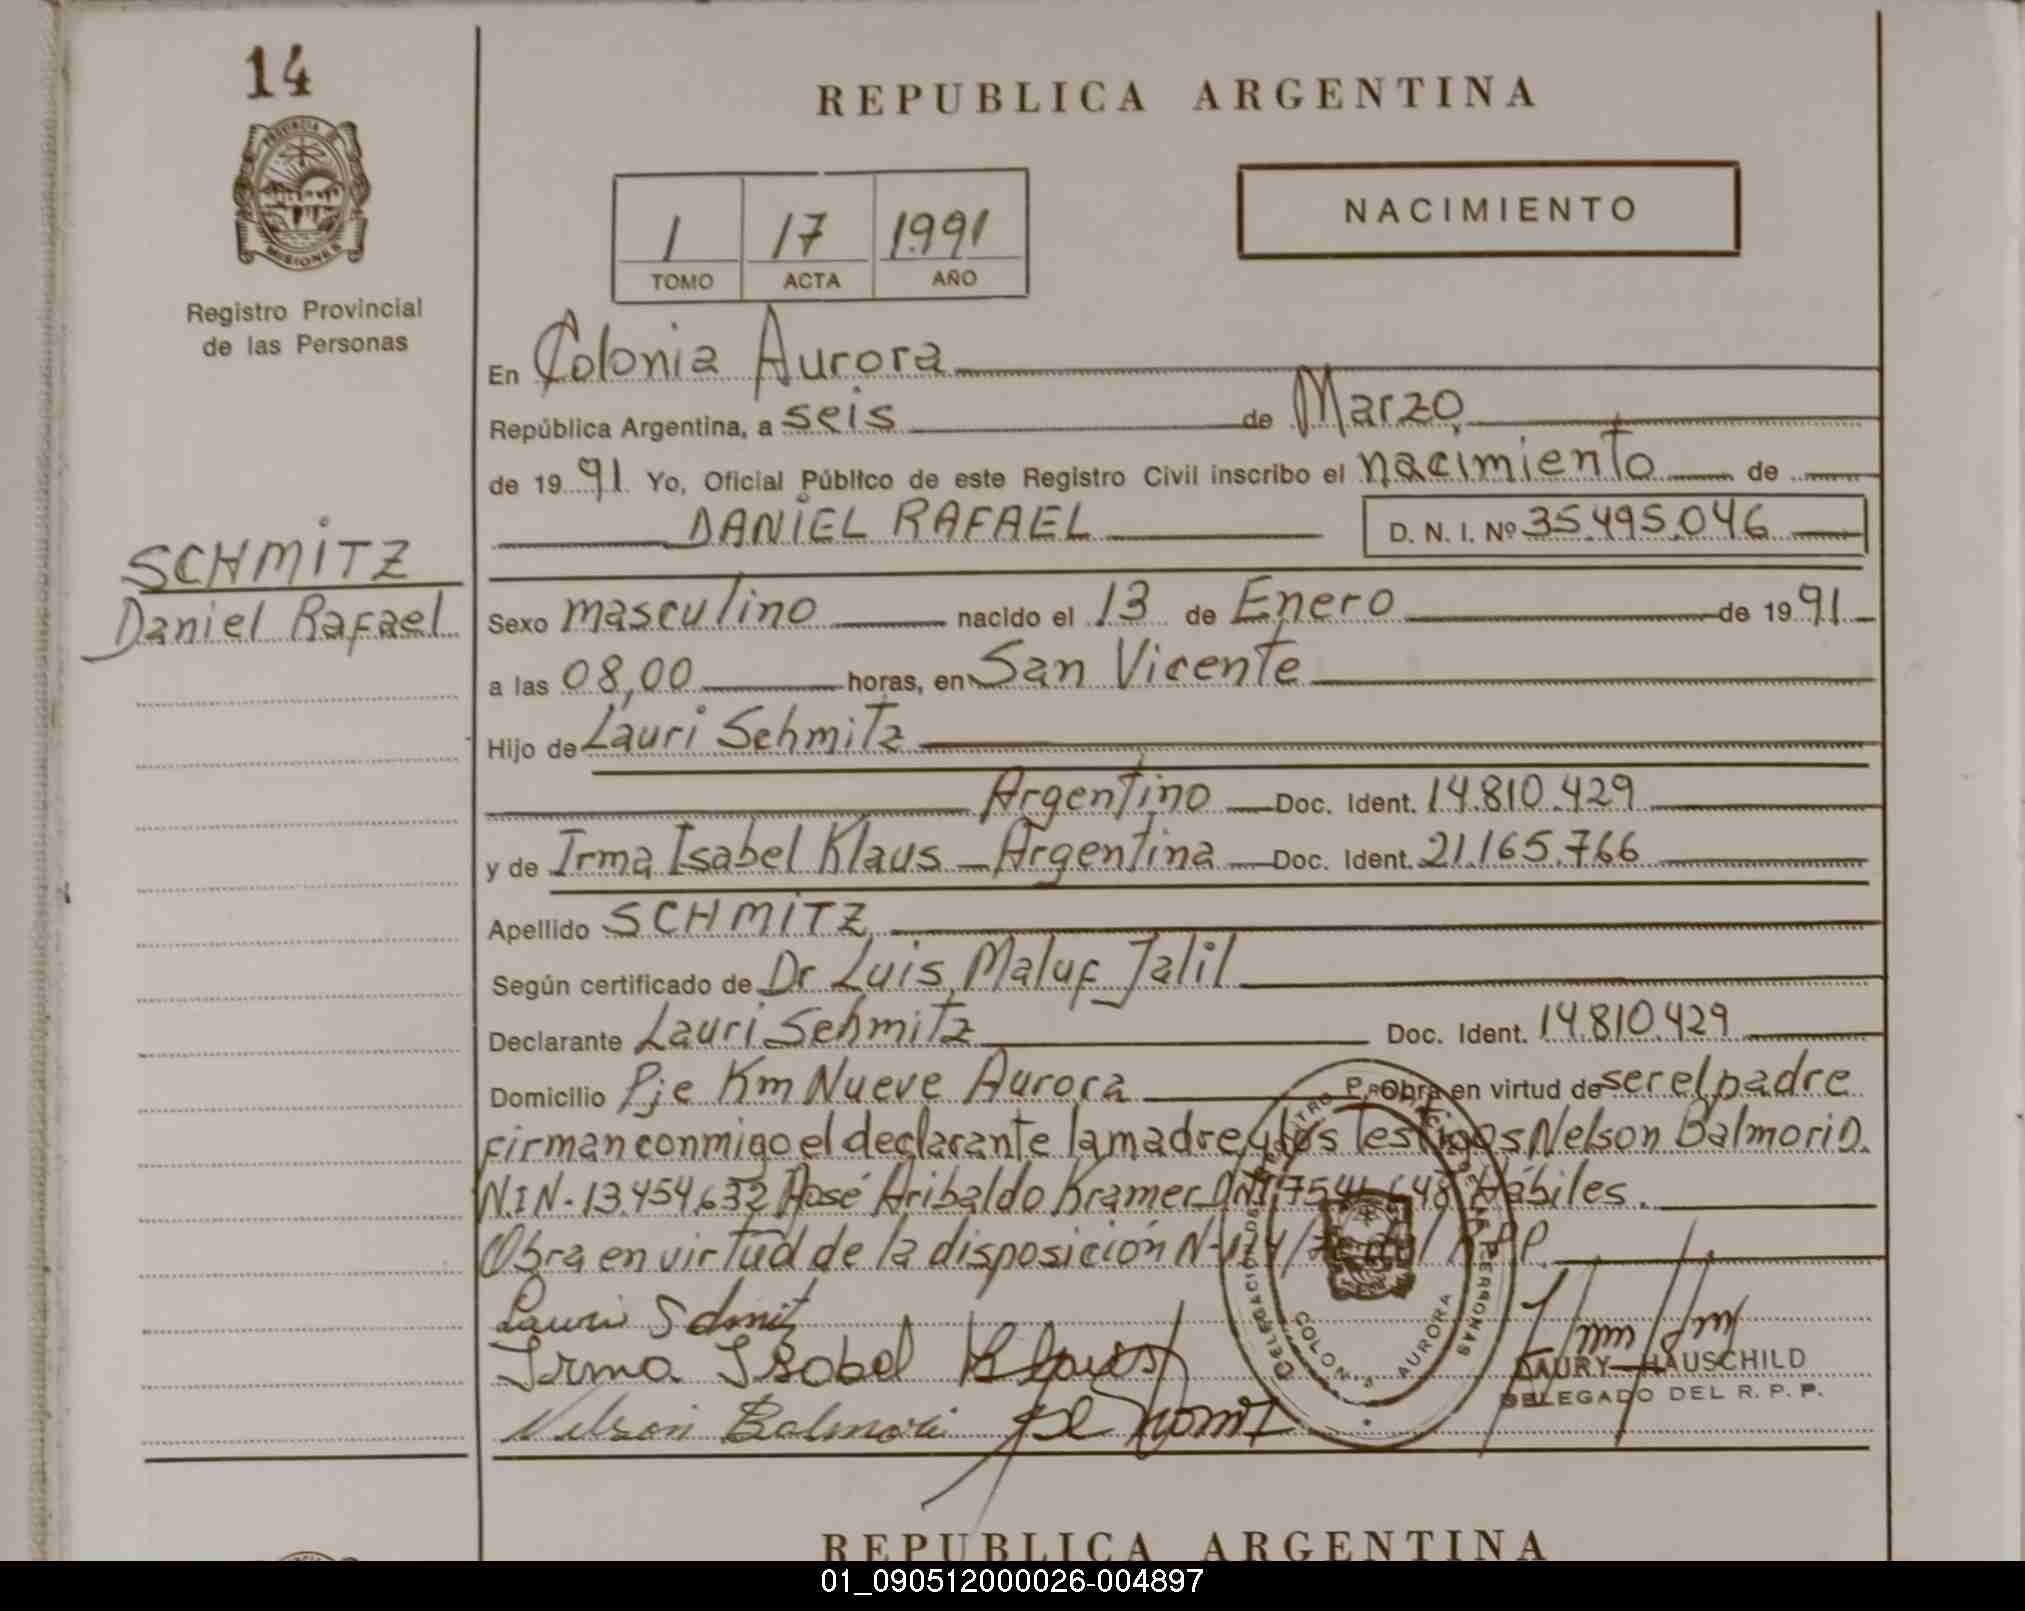 14
PROVINCIA DE
MISIONES
Registro Provincial
de las Personas
SCHMITZ
Daniel Rafael
REPUBLICA ARGENTINA
1 17 1991
TOMO ACTA AÑO
NACIMIENTO
En Colonia Aurora
República Argentina, a seis de Marzo
de 1991 Yo, Oficial Público de este Registro Civil inscribo el nacimiento de
DANIEL RAFAEL D. N. I. Nº 35.495.046
Sexo masculino nacido el 13 de Enero de 1991
a las 08,00 horas, en San Vicente
Hijo de Lauri Schmitz
Argentino Doc. Ident. 14.810.429
y de Irma Isabel Klaus Argentina Doc. Ident. 21.165.766
Apellido SCHMITZ
Según certificado de Dr Luis Maluf Jalil
Declarante Lauri Schmitz Doc. Ident. 14.810.429
Domicilio Pje Km Nueve Aurora Obra en virtud de ser el padre
firman conmigo el declarante la madre y los testigos Nelson Balmori D.
N.I.N-13.454.632 José Aribaldo Kramer Hábiles.
Obra en virtud de la disposición
Irma Isabel Klauss
Nelson Balmori
COLONIA AURORA
LAURY HAUSCHILD
DELEGADO DEL R. P. P.
REPUBLICA ARGENTINA
01_090512000026-004897